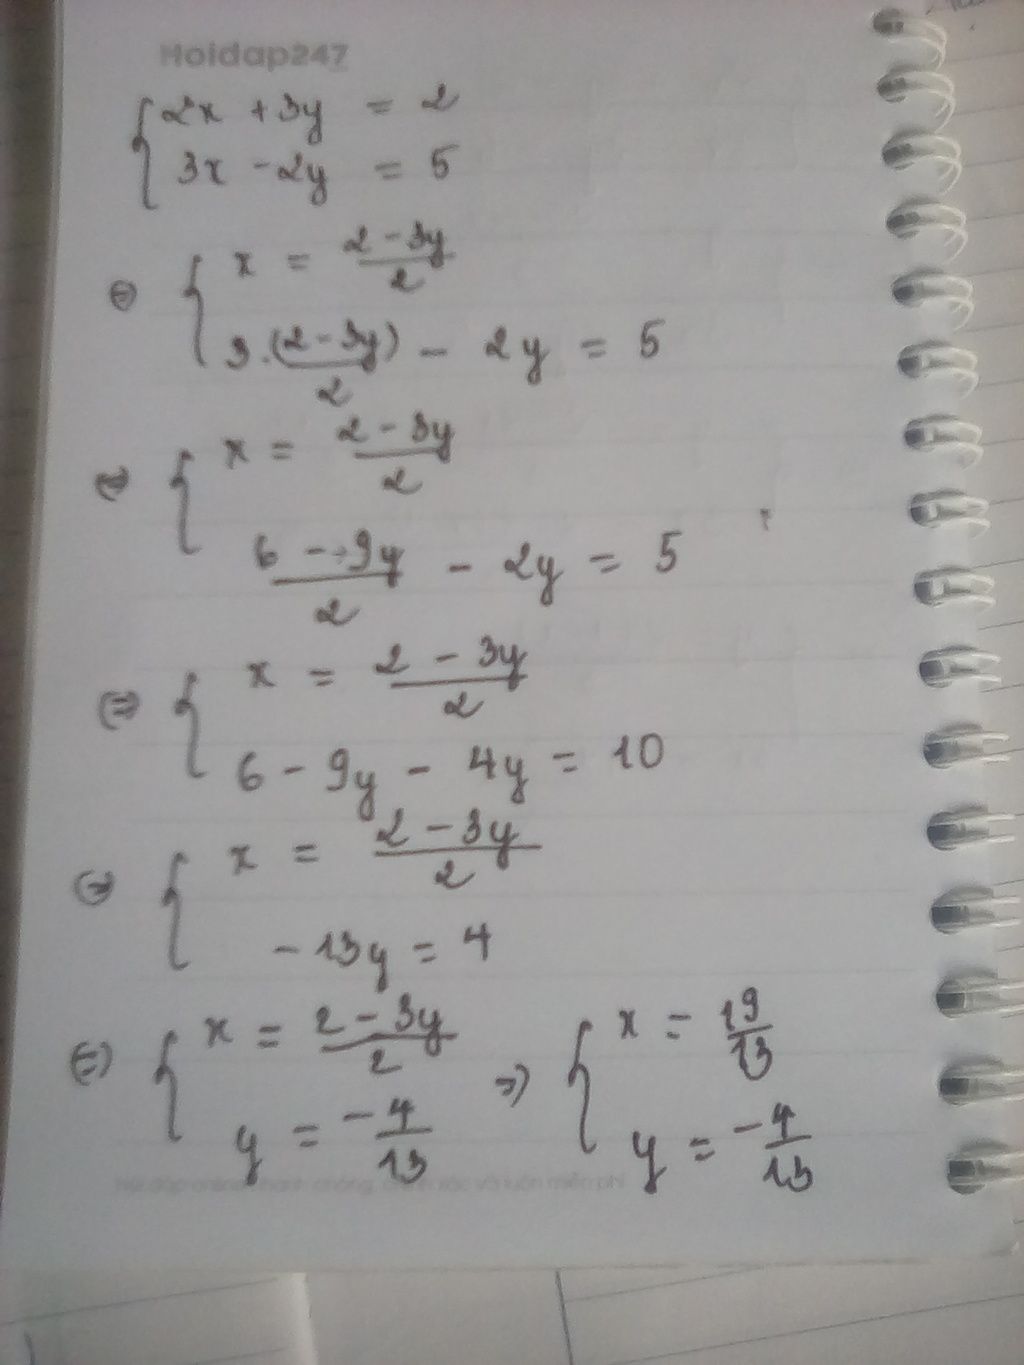 Hoidap247
{ 2x + 3y = 2
3x - 2y = 5
⇔ { x = \frac{2 - 3y}{2}
3.\frac{(2 - 3y)}{2} - 2y = 5
⇔ { x = \frac{2 - 3y}{2}
\frac{6 - 9y}{2} - 2y = 5
⇔ { x = \frac{2 - 3y}{2}
6 - 9y - 4y = 10
⇔ { x = \frac{2 - 3y}{2}
-13y = 4
⇔ { x = \frac{2 - 3y}{2} ⇒ { x = \frac{19}{13}
y = -\frac{4}{13} y = -\frac{4}{13}